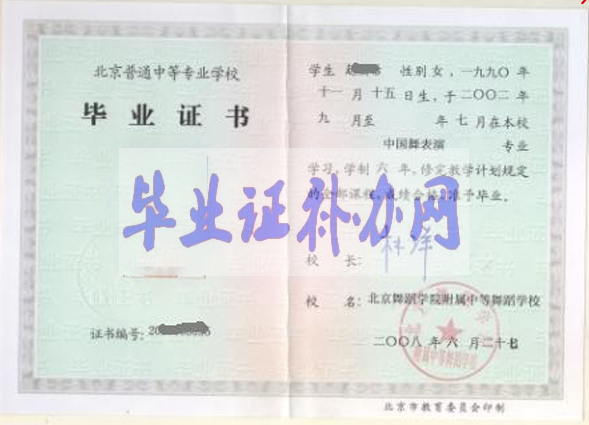 北京普通中等专业学校
毕业证书
证书编号:20
学生 性别女,一九九〇年
十一月十五日生,于二〇〇二年
九月至 年七月在本校
中国舞表演 专业
学习,学制六年,修完教学计划规定
的全部课程,成绩合格,准予毕业。
毕业证补办网
校长:
校名:北京舞蹈学院附属中等舞蹈学校
二〇〇八年六月二十七日
附属中等舞蹈学校
北京市教育委员会印制